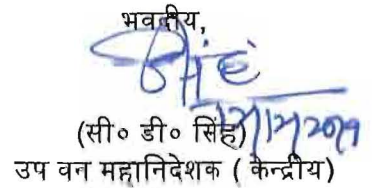 भवदीय,
(सी० डी० सिंह)
उप वन महानिदेशक ( केन्द्रीय)